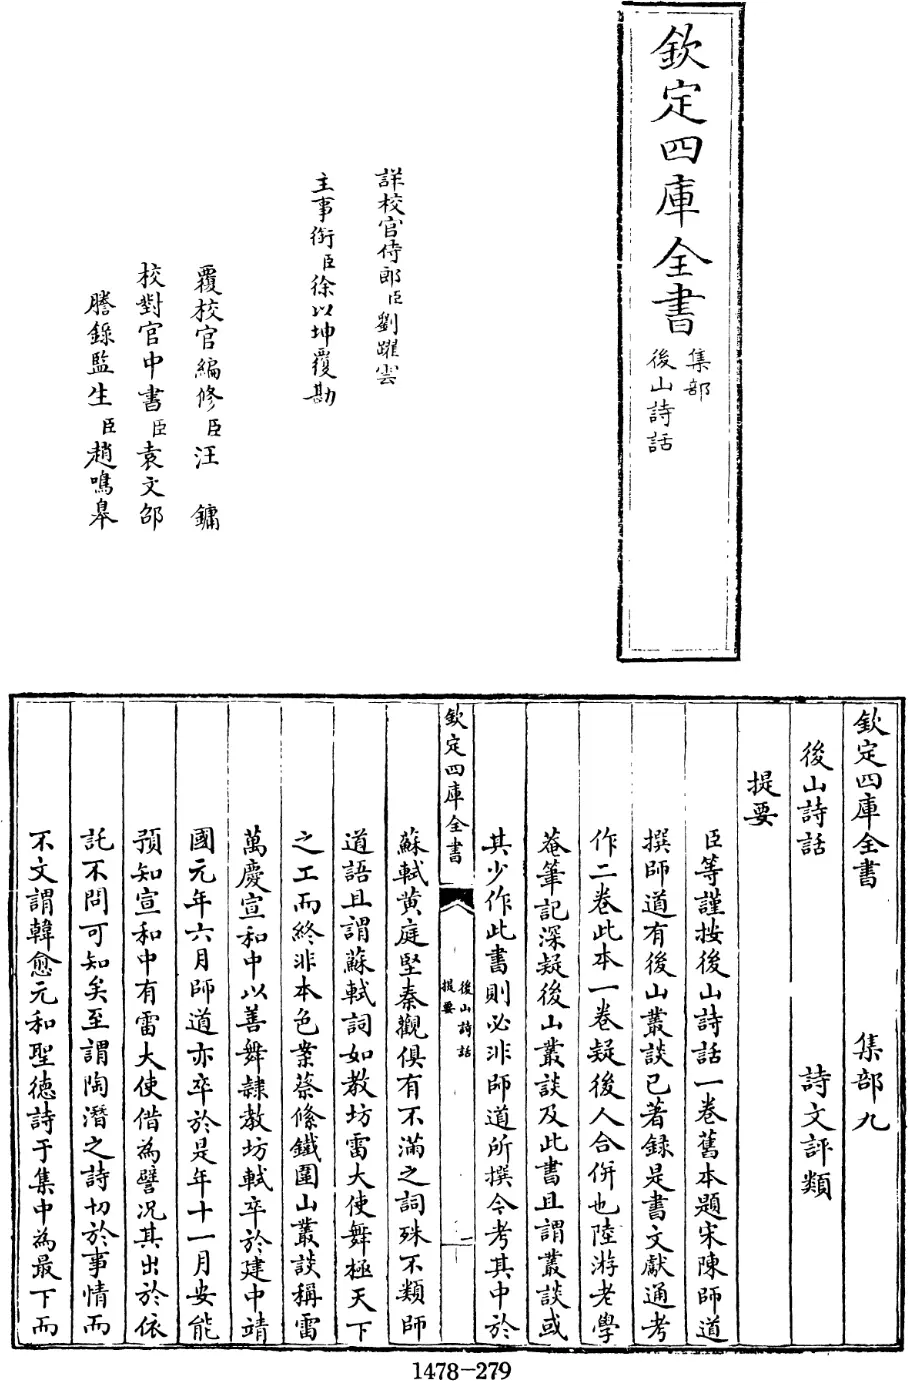 欽定四庫全書
集部
後山詩話
詳校官侍郎臣劉躍雲
主事銜臣徐以坤覆勘
覆校官編修臣汪鏞
校對官中書臣袁文邵
謄錄監生臣趙鳴皋
欽定四庫全書 集部九
後山詩話 詩文評類
提要
臣等謹按後山詩話一卷舊本題宋陳師道
撰師道有後山叢談已著錄是書文獻通考
作二卷此本一卷疑後人合併也陸游老學
菴筆記深疑後山叢談及此書且謂叢談或
其少作此書則必非師道所撰今考其中於
欽定四庫全書
後山詩話
提要
一
蘇軾黄庭堅秦觀俱有不滿之詞殊不類師
道語且謂蘇軾詞如教坊雷大使舞極天下
之工而終非本色案蔡絛鐵圍山叢談稱雷
萬慶宣和中以善舞隸教坊軾卒於建中靖
國元年六月師道亦卒於是年十一月安能
預知宣和中有雷大使借為譬況其出於依
託不問可知矣至謂陶潛之詩切於事情而
不文謂韓愈元和聖德詩于集中為最下而
1478-279